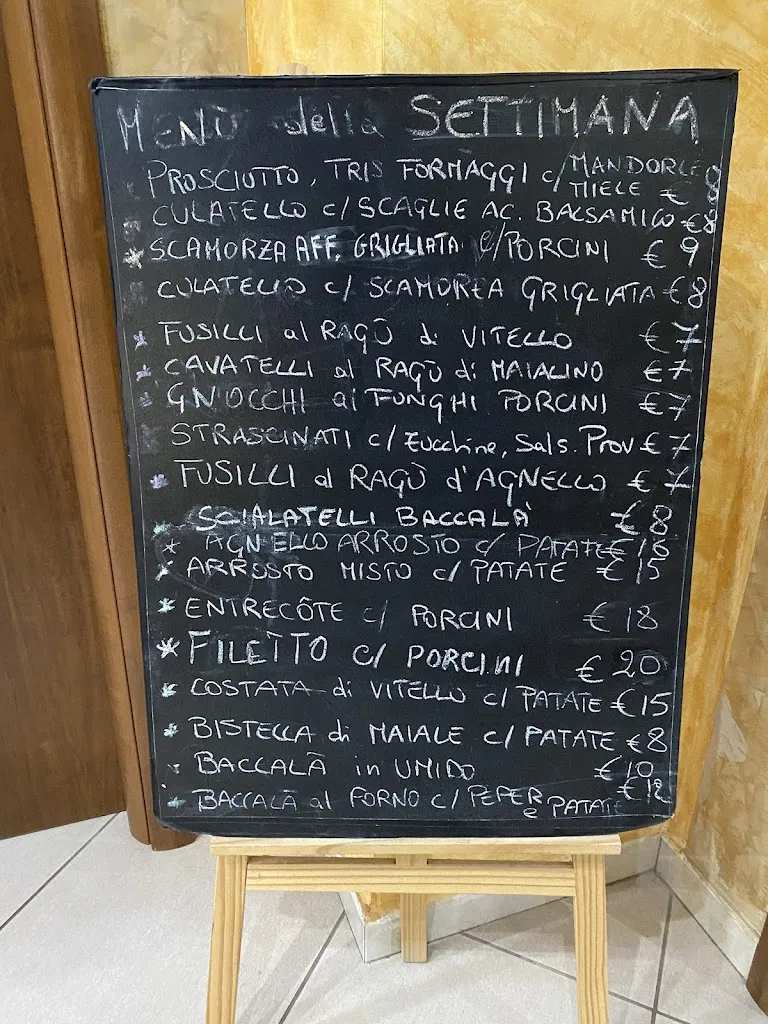 MENÙ della SETTIMANA
PROSCIUTTO, TRIS FORMAGGI c/ MANDORLE MIELE € 8
CULATELLO c/ SCAGLIE AC. BALSAMICO € 8
* SCAMORZA AFF. GRIGLIATA c/PORCINI € 9
CULATELLO c/ SCAMORZA GRIGLIATA € 8
* FUSILLI al RAGÙ di VITELLO € 7
* CAVATELLI al RAGÙ di MAIALINO € 7
* GNOCCHI ai FUNGHI PORCINI € 7
* STRASCINATI c/ Zucchine, Sals. Prov € 7
* FUSILLI al RAGÙ d'AGNELLO € 7
* SCIALATELLI BACCALÀ € 8
* AGNELLO ARROSTO c/ PATATE € 16
* ARROSTO MISTO c/ PATATE € 15
* ENTRECÔTE c/ PORCINI € 18
* FILETTO c/ PORCINI € 20
* COSTATA di VITELLO c/ PATATE € 15
* BISTECCA di MAIALE c/ PATATE € 8
* BACCALÀ in UMIDO € 10
* BACCALÀ al FORNO c/ PEPER e PATATE € 12